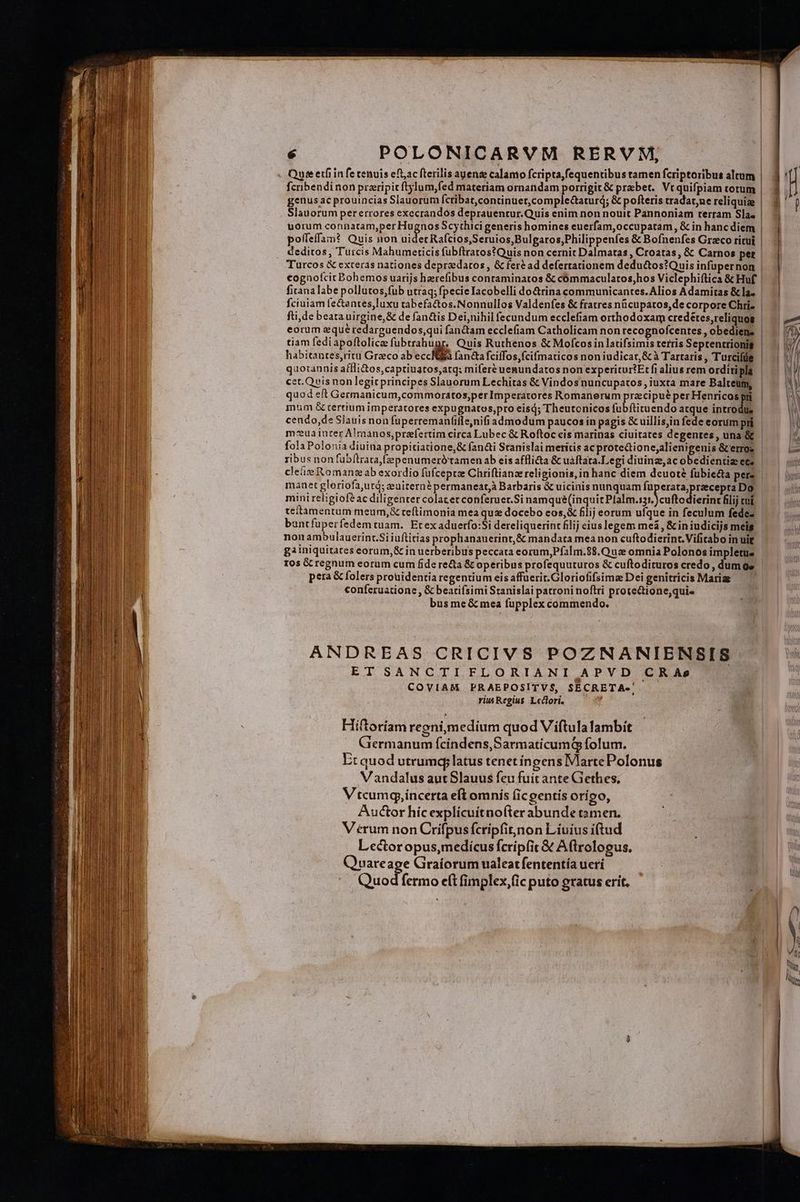 6 POLONICARVM RERVM,
Quæ etsi in se tenuis est,ac sterilis auenæ calamo scripta,sequentibus tamen scriptoribus altum
scribendi non præripit stylum,sed materiam ornandam porrigit & præbet. Vt quispiam totum
genus ac prouincias Slauorum scribat,continuet,complectaturq́; & posteris tradat,ne reliquiæ
Slauorum per errores execrandos deprauentur.Quis enim non nouit Pannoniam terram Sla⸗
uorum connatam,per Hugnos Scythici generis homines euersam,occupatam, & in hanc diem
possessam? Quis non uidet Rascios,Seruios,Bulgaros,Philippenses & Bosnenses Græco ritui
deditos, Turcis Mahumeticis substratos?Quis non cernit Dalmatas, Croatas, & Carnos per
Turcos & exteras nationes deprædatos, & ferè ad desertationem deductos?Quis insuper non
cognoscit Bohemos uarijs hæresibus contaminatos & cōmaculatos,hos Viclephistica & Hus
sitana labe pollutos,sub utraq; specie Iacobelli doctrina communicantes.Alios Adamitas & la⸗
sciuiam sectantes,luxu tabefactos.Nonnullos Valdenses & fratres nūcupatos,de corpore Chri⸗
sti,de beata uirgine,& de sanctis Dei,nihil secundum ecclesiam orthodoxam credētes,reliquos
eorum æquè redarguendos,qui sanctam ecclesiam Catholicam non recognoscentes, obedien⸗
tiam sedi apostolicæ subtrahunt. Quis Ruthenos & Moscos in latissimis terris Septentrionis
habitantes,ritu Græco ab ecclesia sancta scissos,scismaticos non iudicat,& à Tartaris, Turcisq́
quotannis afflictos,captiuatos,atq; miserè uenundatos non experitur?Et si alius rem ordiri pla
cet.Quis non legit principes Slauorum Lechitas & Vindos nuncupatos, iuxta mare Balteum,
quod est Germanicum,commoratos,per Imperatores Romanorum præcipuè per Henricos pri
mum & tertium imperatores expugnatos,pro eisq́; Theutonicos substituendo atque introdu⸗
cendo,de Slauis non superremansisse,nisi admodum paucos in pagis & uillis,in fede eorum pri
mæua inter Almanos,præsertim circa Lubec & Rostoc eis marinas ciuitates degentes, una &
sola Polonia diuina propitiatione,& sancti Stanislai meritis ac protectione,alienigenis & erro⸗
ribus non substrata,sæpenumerò tamen ab eis afflicta & uastata.Legi diuinæ,ac obedientiæ ec⸗
clesiæ Romanæ ab exordio susceptæ Christianæ religionis,in hanc diem deuotè subiecta per⸗
manet gloriosa,utq́; æuiternè permaneat,à Barbaris & uicinis nunquam superata,præcepta Do
mini religiosè ac diligenter colat et conseruet.Si namque(inquit Psalm.131.)custodierint filij tui
testamentum meum,& testimonia mea quæ docebo eos,& filij eorum usque in seculum sede⸗
bunt super sedem tuam. Et ex aduerso:Si dereliquerint filij eius legem meā, & in iudicijs meis
non ambulauerint.Si iustitias prophanauerint,& mandata mea non custodierint.Visitabo in uir
ga iniquitates eorum,& in uerberibus peccata eorum,Psalm.88.Quæ omnia Polonos impletu⸗
ros & regnum eorum cum fide recta & operibus prosequuturos & custodituros credo, dum oe
pera & solers prouidentia regentium eis affuerit.Gloriosissimæ Dei genitricis Mariæ
conseruatione, & beatissimi Stanislai patroni nostri protectione,qui⸗
bus me & mea supplex commendo.
ANDREAS CRICIVS POZNANIENSIS
ET SANCTI FLORIANI APVD CRA⸗
COVIAM PRAEPOSITVS, SECRETA⸗
rius Regius Lectori.
Historiam regni,medium quod Vistula lambit
Germanum scindens,Sarmaticumq́ solum.
Et quod utrumq; latus tenet ingens Marte Polonus
Vandalus aut Slauus seu fuit ante Gethes.
Vtcumq;,incerta est omnis sic gentis origo,
Auctor hic explicuit noster abunde tamen.
Verum non Crispus scripsit,non Liuius istud
Lector opus,medicus scripsit & Astrologus.
Quare age Graiorum ualeat sententia ueri
Quod sermo est simplex,sic puto gratus erit.